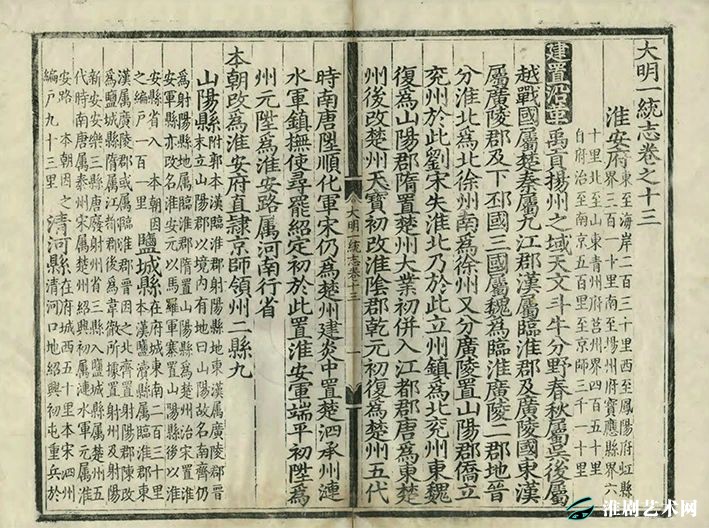 大明一統志卷之十三
淮安府
東至海岸二百三十里西至鳳陽府虹縣
界三百一十里南至揚州府寶應縣界六
十里北至山東青州府莒州界四百五十里
自府治至南京五百里至京師三千一十里
建置沿革 禹貢揚州之域天文斗牛分野春秋屬吳後屬
越戰國屬楚秦屬九江郡漢屬臨淮郡及廣陵國東漢
屬廣陵郡及下邳國三國屬魏爲臨淮廣陵二郡地晉
分淮北爲北徐州南爲徐州又分廣陵置山陽郡僑立
兖州於此劉宋失淮北乃於此立州鎮爲北兖州東魏
復爲山陽郡隋置楚州大業初併入江都郡唐爲東楚
州後改楚州天寶初改淮陰郡乾元初復爲楚州五代
大明一統志卷十三
一
時南唐陞順化軍宋仍爲楚州建炎中置楚泗承州漣
水軍鎮撫使尋罷紹定初於此置淮安軍端平初陞爲
州元陞爲淮安路属河南行省
本朝改爲淮安府直隷京師領州二縣九
山陽縣
附郭本漢臨淮郡射陽縣地東漢屬廣陵郡晉
末立山陽郡以境内有地曰山陽故名南齊仍
安縣省入本朝因之編户一百一里
鹽城縣
在府城東南二百三十里
本漢鹽瀆縣屬臨淮郡東
代時南唐属泰州宋属楚州紹興初属漣水軍元属淮
安路本朝因之編户九十三里
清河縣
在府城西五十里本宋泗州
清河口地紹興初屯重兵於
淮剧艺术网